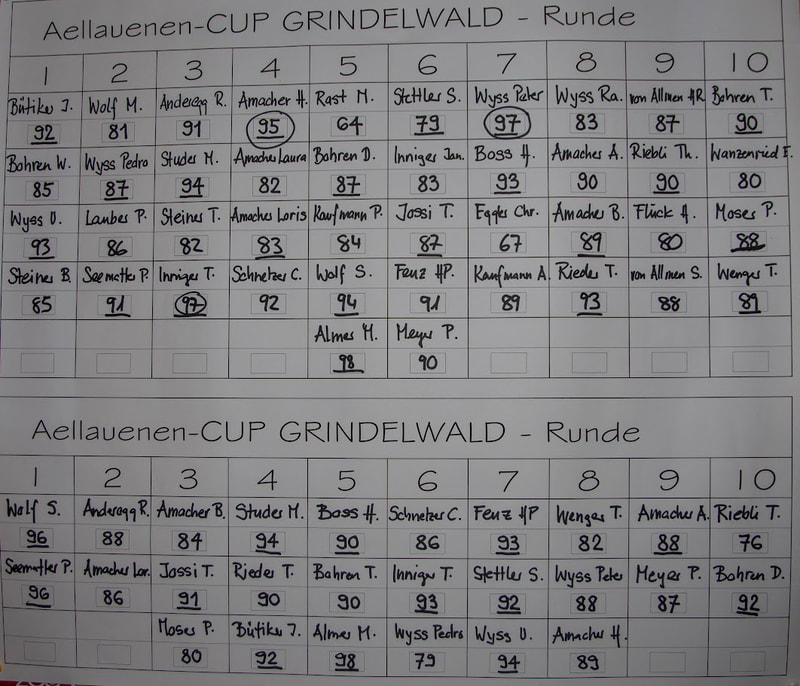 Aellauenen-CUP GRINDELWALD - Runde
1 2 3 4 5 6 7 8 9 10
Bütiker J. Wolf M. Anderegg R. Amacher H. Rast M. Stettler S. Wyss Peter Wyss Ra. von Allmen HR. Bohren T.
92 81 91 95 64 79 97 83 87 90
Bohren W. Wyss Pedro Studer M. Amacher Laura Bohren D. Inniger Jan. Boss H. Amacher A. Riebli Th. Wanzenried F.
85 87 94 82 87 83 93 90 90 80
Wyss U. Lauber P. Steiner T. Amacher Loris Kaufmann P. Jossi T. Eggler Chr. Amacher B. Flück A. Moser P.
93 86 82 83 84 87 67 89 80 88
Steiner B. Seematter P. Inniger T. Schnetzer C. Wolf S. Feuz HP. Kaufmann A. Rieder T. von Allmen S. Wenger T.
85 91 97 92 94 91 89 93 88 89
Almer M. Meyer P.
98 90
Aellauenen-CUP GRINDELWALD - Runde
1 2 3 4 5 6 7 8 9 10
Wolf S. Anderegg R. Amacher B. Studer M. Boss H. Schnetzer C. Feuz HP Wenger T. Amacher A. Riebli T.
96 88 84 94 90 86 93 82 88 76
Seematter P. Amacher Lor. Jossi T. Rieder T. Bohren T. Inniger T. Stettler S. Wyss Peter Meyer P. Bohren D.
96 86 91 90 90 93 92 88 87 92
Moser P. Bütiker J. Almer M. Wyss Pedro Wyss U. Amacher H.
80 92 98 79 94 89